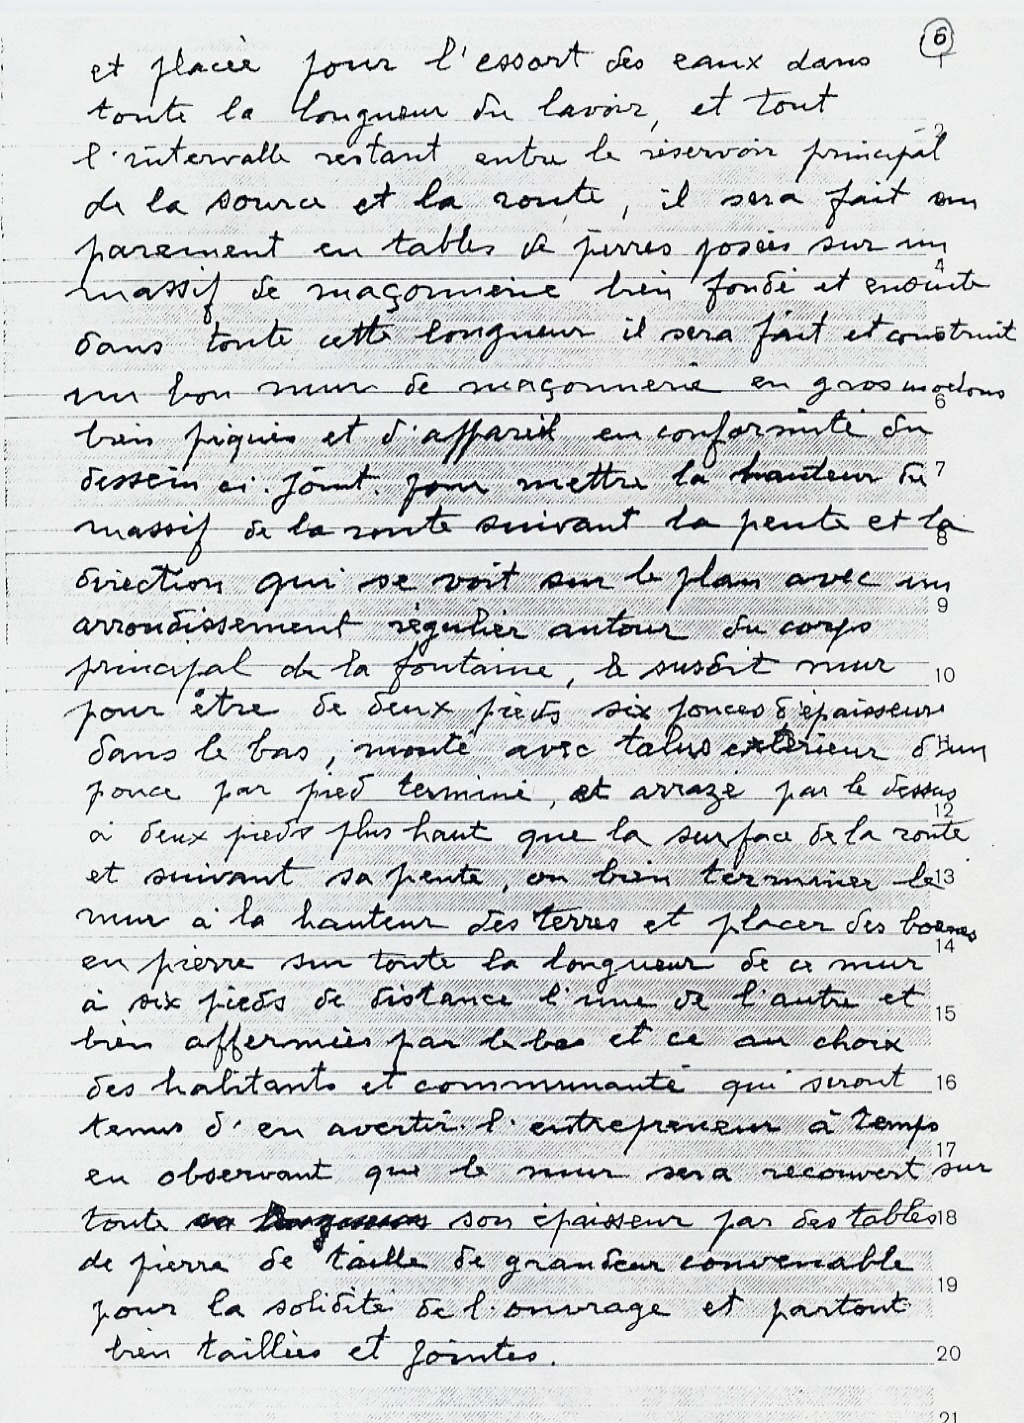 6
et placée pour l'essort des eaux dans
1
toute la longueur du lavoir, et tout
2
l'intervalle restant entre le réservoir principal
de la source et la route, il sera fait un
parement en tables de pierres posées sur un
4
massif de maçonnerie bien fondé et ensuite
dans toute cette longueur il sera fait et construit
un bon mur de maçonnerie en gros moelons
6
bien piqués et d'appareil en conformité du
dessein ci-joint. pour mettre la hauteur du
7
massif de la route suivant la pente et la
8
direction qui se voit sur le plan avec un
9
arrondissement régulier autour du corps
principal de la fontaine, le susdit mur
10
pour être de deux pieds six pouces d'épaisseur
dans le bas, monté avec talus extérieur d'un
11
pouce par pied terminé, et arrazé par le dessus
12
à deux pieds plus haut que la surface de la route
et suivant sa pente, ou bien terminer le
13
mur à la hauteur des terres et placer des bornes
14
en pierre sur toute la longueur de ce mur
à six pieds de distance l'une de l'autre et
15
bien affermies par le bas et ce au choix
des habitants et communauté qui seront
16
tenus d'en avertir l'entrepreneur à temps
17
en observant que le mur sera recouvert sur
toute son épaisseur par des tables
18
de pierre de taille de grandeur convenable
19
pour la solidité de l'ouvrage et partout
bien taillées et jointes.
20
21